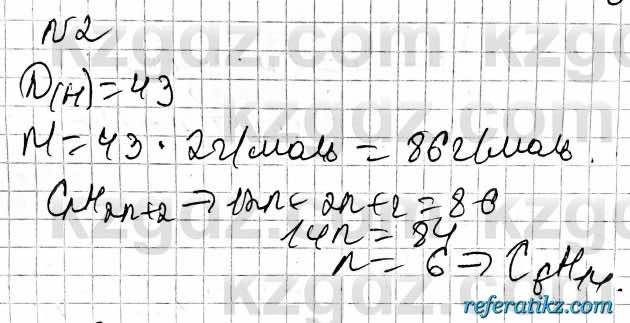 N2
D(H)=43
M=43·2г/моль=86г/моль.
CnH2n+2→12n+2n+2=86
14n=84
n=6⇒C6H14.
kzgdz.com
referatikz.com